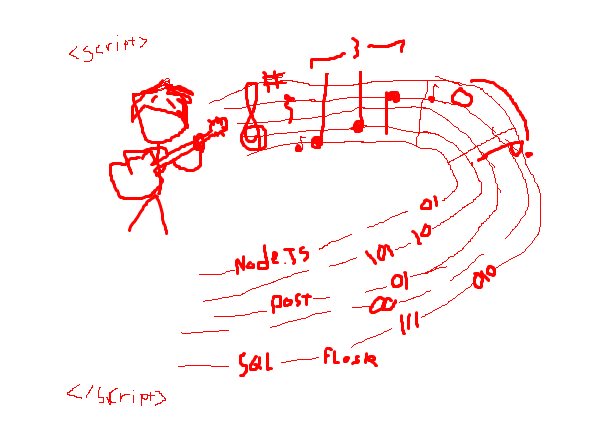 <script>
3
01
10
101
Node.JS
01
010
post
00
111
SQL
Flask
</script>